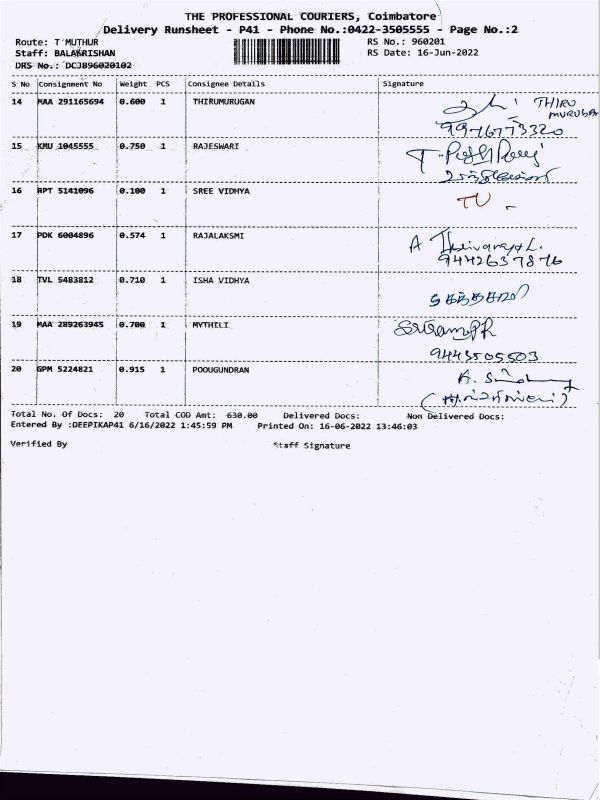 THE PROFESSIONAL COURIERS, Coimbatore
Delivery Runsheet - P41 - Phone No.:0422-3505555 - Page No.:2
Route: T MUTHUR RS No.: 960201
Staff: BALAKRISHAN RS Date: 16-Jun-2022
DRS No.: DCJ896020102
S No Consignment No Weight PCS Consignee Details Signature
14 MAA 291165694 0.600 1 THIRUMURUGAN THIRU
MURUGAN
9976773320
15 KMU 1045555 0.750 1 RAJESWARI
16 RPT 5141096 0.100 1 SREE VIDHYA TU -
17 PDK 6004896 0.574 1 RAJALAKSMI A
9442637876
18 TVL 5483812 0.710 1 ISHA VIDHYA
19 MAA 289263945 0.700 1 MYTHILI
9443505503
20 GPM 5224821 0.915 1 POOUGUNDRAN
Total No. Of Docs: 20 Total COD Amt: 630.00 Delivered Docs: Non Delivered Docs:
Entered By :DEEPIKAP41 6/16/2022 1:45:59 PM Printed On: 16-06-2022 13:46:03
Verified By Staff Signature